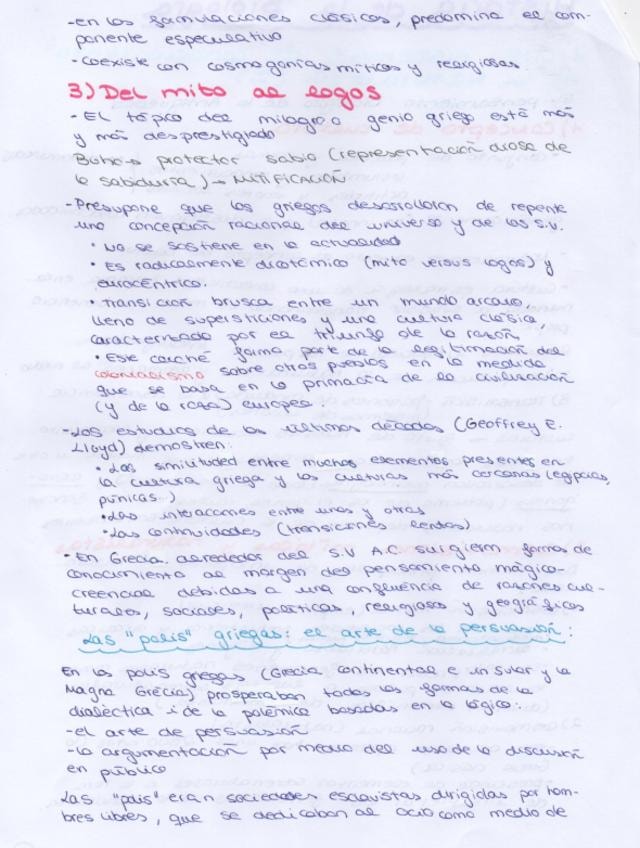 -en las formulaciones clásicas, predomina el com-
ponente especulativo
-Coexiste con cosmogonías míticas y religiosas.
3) Del mito al logos
-El tópico del milagro o genio griego está más
y más desprestigiado
Búho → protector sabio (representación diosa de
la sabiduría) → justificación
-Presupone que los griegos desarrollaron de repente
una concepción racional del universo y de los s.v.
• No se sostiene en la actualidad
• Es radicalmente dicotómico (mito versus logos) y
eurocéntrico.
• Transición brusca entre un mundo arcaico,
lleno de supersticiones y una cultura clásica,
caracterizada por el triunfo de la razón,
• Este cliché forma parte de la legitimación del
colonialismo sobre otros pueblos en la medida
que se basa en la primacía de la civilización
(y de la raza) europea.
-Los estudios de las últimas décadas (Geoffrey E.
Lloyd) demostren:
• Las similitudes entre muchos elementos presentes en
la cultura griega y las culturas más cercanas (egipcias,
púnicas..)
• Las interacciones entre unas y otras
• Las continuidades (transiciones lentas)
• En Grecia alrededor del S.V A.C. surgieron formas de
conocimiento al margen del pensamiento mágico-
creencial debidas a una confluencia de razones cul-
turales, sociales, políticas, religiosas y geográficas
Las "polis" griegas: el arte de la persuasión:
En las polis griegas (Grecia continental e insular y la
Magna Grecia) prosperaban todas las formas de la
dialéctica i de la polémica basadas en la lógica:
-el arte de persuasión
-la argumentación por medio del uso de la discusión
en público
Las "polis" eran sociedades esclavistas dirigidas por hom-
bres libres, que se dedicaban al ocio como medio de